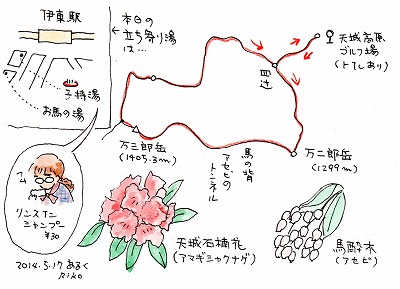 伊東駅
子持湯
お馬の湯
本日の
立ち寄り湯
は…
天城高原
ゴルフ場
(トイレあり)
四辻
万三郎岳
(1405.3m)
馬の背
アセビの
トンネル
万二郎岳
(1299m)
リンスイン
シャンプー
¥30
天城石楠花
(アマギシャクナゲ)
馬酔木
(アセビ)
2014.5.17 あるく
Riko